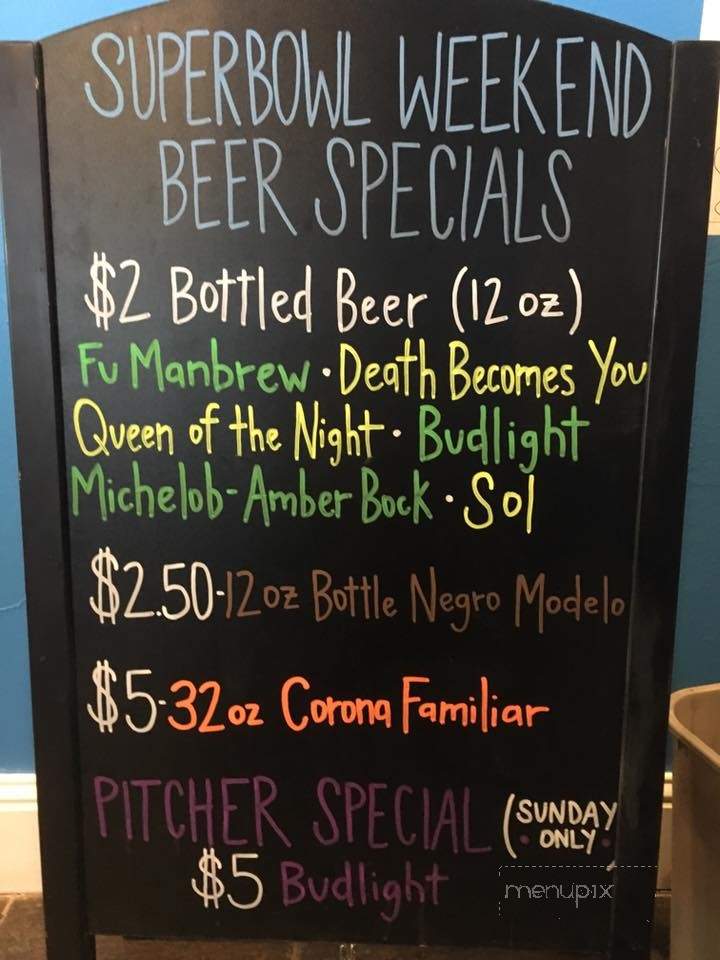 SUPERBOWL WEEKEND
BEER SPECIALS
$2 Bottled Beer (12 oz)
Fu Manbrew · Death Becomes You
Queen of the Night · Budlight
Michelob-Amber Bock · Sol
$2.50-12oz Bottle Negro Modelo
$5-32oz Corona Familiar
PITCHER SPECIAL (SUNDAY
· ONLY ·
$5 Budlight
menupix